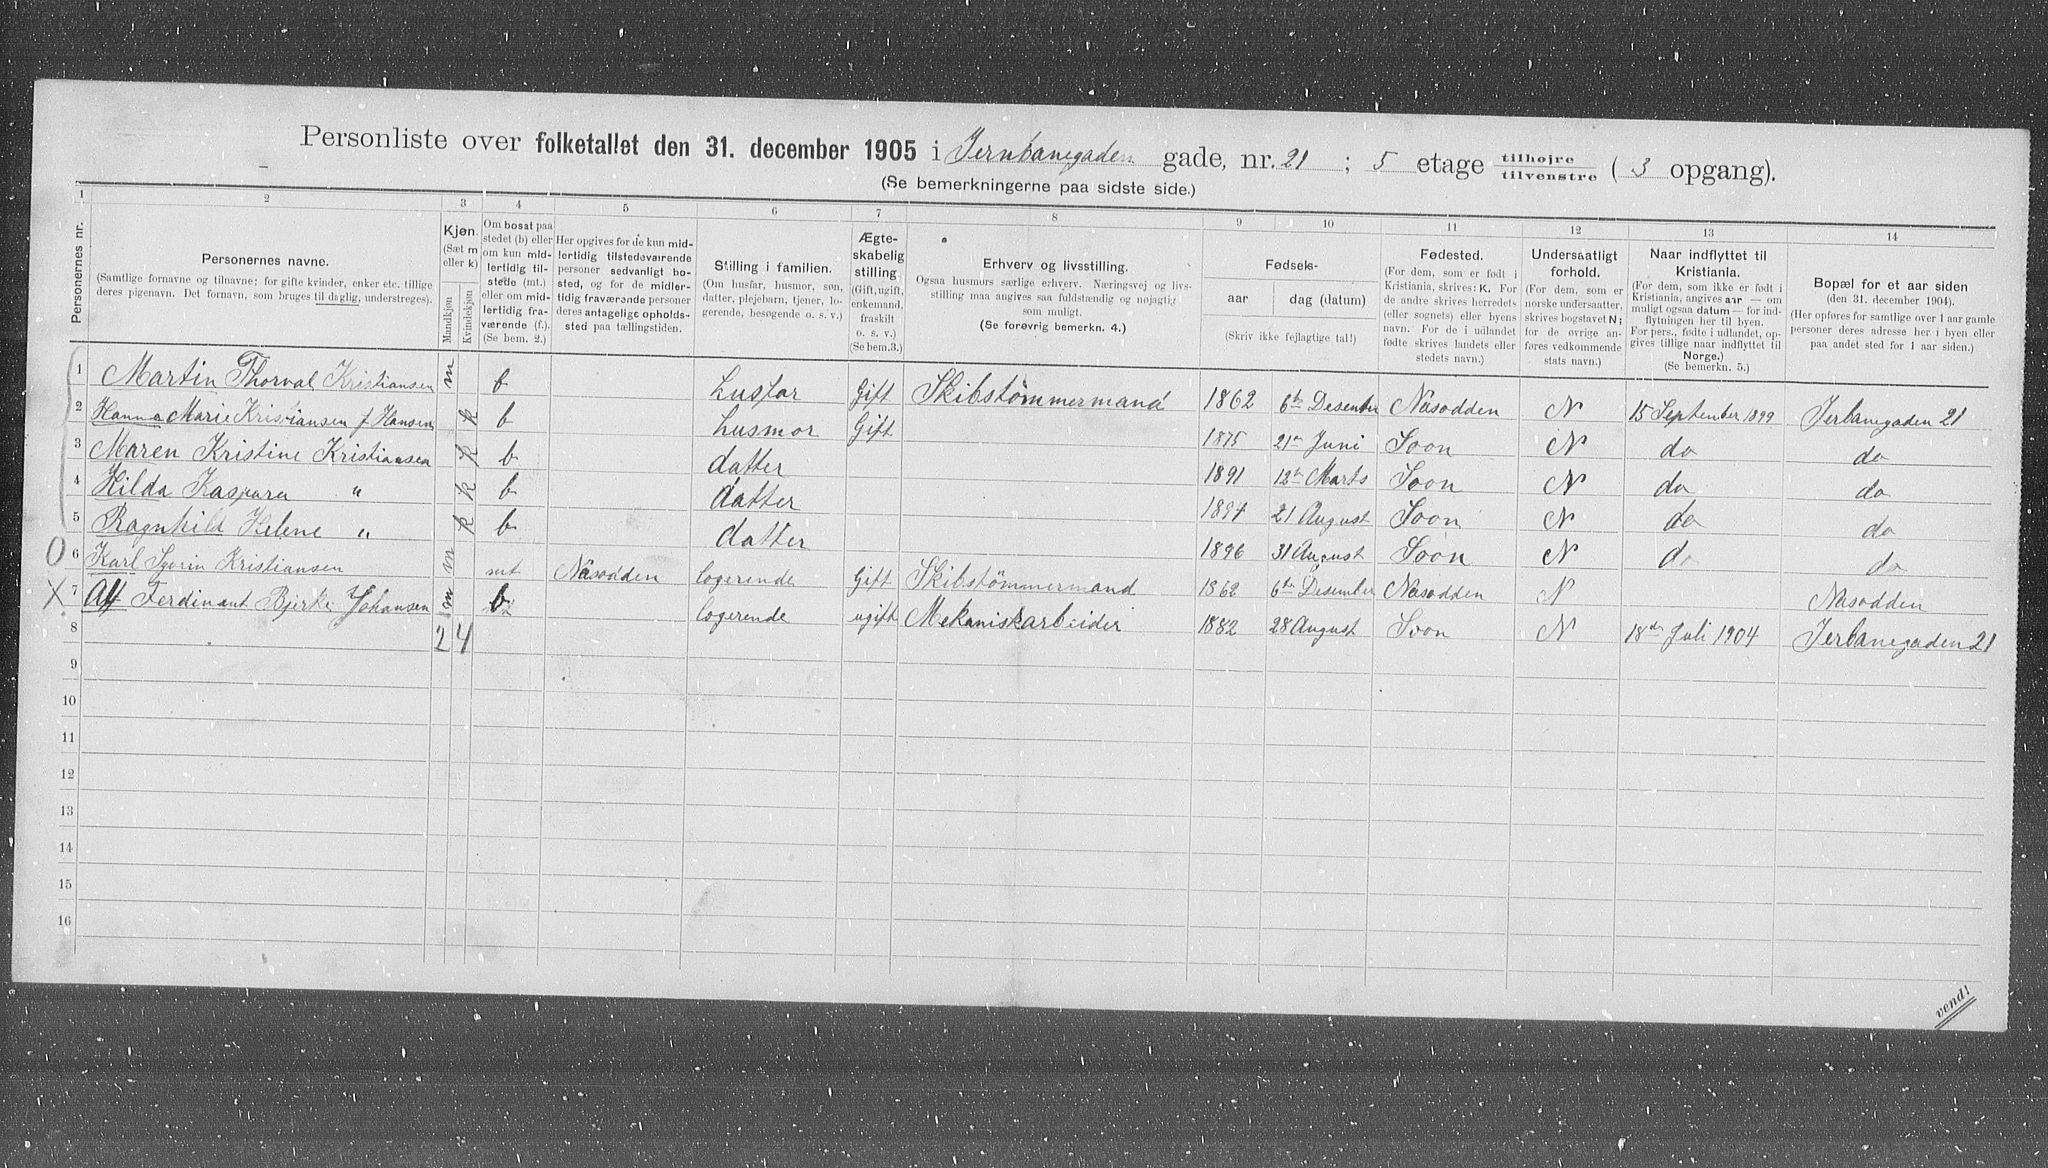 Personliste over folketallet den 31. december 1905 i Jernbanegaden gade, nr. 21 ; 5 etage tilhøjre tilvenstre ( 3 opgang).
(Se bemerkningerne paa sidste side.)
1 2 3 4 5 6 7 8 9 10 11 12 13 14
Personernes nr.
Personernes navne.
(Samtlige fornavne og tilnavne; for gifte kvinder, enker etc. tillige
deres pigenavn. Det fornavn, som bruges til daglig, understreges).
Kjøn.
(Sæt m
eller k)
Mandkjøn
Kvindekjøn
Om bosat paa
stedet (b) eller
om kun mid-
lertidig til-
stede (mt.)
eller om mid-
lertidig fra-
værende (f.).
(Se bem. 2.)
Her opgives for de kun mid-
lertidig tilstedeværende
personer sedvanligt bo-
sted, og for de midler-
tidig fraværende personer
deres antagelige opholds-
sted paa tællingstiden.
Stilling i familien.
(Om husfar, husmor, søn,
datter, plejebarn, tjener, lo-
gerende, besøgende o. s. v.)
Ægte-
skabelig
stilling
(Gift, ugift,
enkemand,
fraskilt
o. s. v.)
(Se bem.3.)
Erhverv og livsstilling.
Ogsaa husmors særlige erhverv. Næringsvej og livs-
stilling maa angives saa fuldstændig og nøjagtig
som muligt.
(Se forøvrig bemerkn. 4.)
Fødsels-
aar
dag (datum)
(Skriv ikke fejlagtige tal!)
Fødested.
(For dem, som er født i
Kristiania, skrives: K. For
de andre skrives herredets
(eller sognets) eller byens
navn. For de i udlandet
fødte skrives landets eller
stedets navn.)
Undersaatligt
forhold.
(For dem, som er
norske undersaatter,
skrives bogstavet N;
for de øvrige an-
føres vedkommende
stats navn.)
Naar indflyttet til
Kristiania.
(For dem, som ikke er født i
Kristiania, angives aar — om
muligt ogsaa datum — for ind-
flytningen her til byen.
For pers., fødte i udlandet, op-
gives tillige naar indflyttet til
Norge.)
(Se bemerkn. 5.)
Bopæl for et aar siden
(den 31. december 1904).
(Her opføres for samtlige over 1 aar gamle
personer deres adresse her i byen eller
paa andet sted for 1 aar siden.)
1 Martin Thorval Kristiansen m b husfar Gift Skibstømmermand 1862 6te Desember Næsodden N 15 September 1899 Jerbanegaden 21
2 Hanna Marie Kristiansen f Hansen k b husmor Gift 1875 21n Juni Soon N do do
3 Maren Kristine Kristiansen k b datter 1891 12te Marts Soon N do do
4 Hilda Kaspara " k b datter 1894 21 August Soon N do do
5 Ragnhild Helene " k b datter 1896 31 August Soon N do do
O 6 Karl Syvrin Kristiansen m mt Næsodden logerende Gift Skibstömmermand 1862 6te Desember Næsodden N Næsodden
X 7 Alf Ferdinant Bjerke Johansen m b logerende ugift Mekaniskarbeider 1882 28 August Soon N 18de Juli 1904 Jerbanegaden 21
8 2 4
9
10
11
12
13
14
15
16
vend!